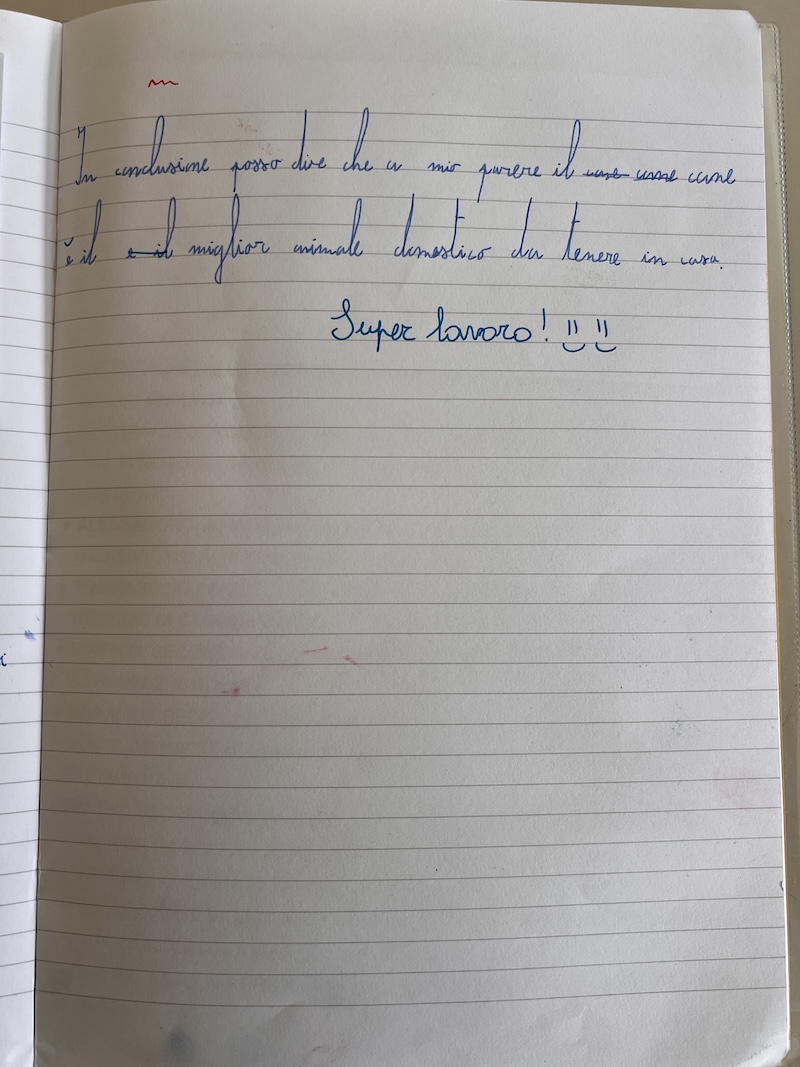 In conclusione posso dire che a mio parere il cane
è il e il miglior animale domestico da tenere in casa.
Super lavoro!
i